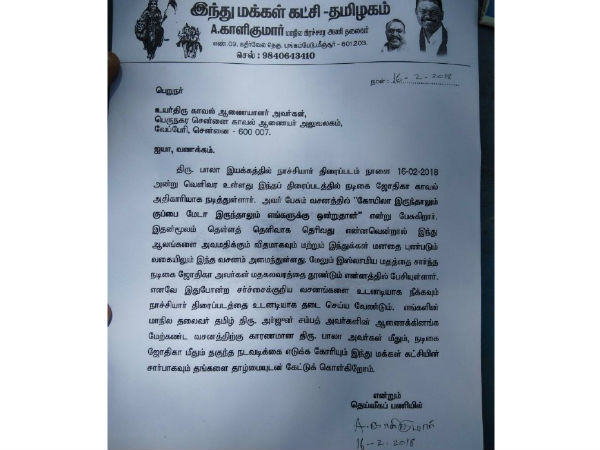 இந்து மக்கள் கட்சி-தமிழகம்
A.காளிகுமார் மாநில பிரச்சார அணி தலைவர்
செல் : 9840643410
நாள்: 16-2-2018
பெறுநர்
உயர்திரு காவல் ஆணையாளர் அவர்கள்,
பெருநகர சென்னை காவல் ஆணையர் அலுவலகம்,
வேப்பேரி, சென்னை - 600 007.
ஐயா, வணக்கம்.
திரு. பாலா இயக்கத்தில் நாச்சியார் திரைப்படம் நாளை 16-02-2018
அன்று வெளிவர உள்ளது இந்தப் திரைப்படத்தில் நடிகை ஜோதிகா காவல்
அதிகாரியாக நடித்துள்ளார். அவர் பேசும் வசனத்தில் "கோயிலா இருந்தாலும்
குப்பை மேடா இருந்தாலும் எங்களுக்கு ஒன்றுதான்" என்று பேசுகிறார்.
இதன்மூலம் தெள்ளத் தெளிவாக தெரிவது என்னவென்றால் இந்து
ஆலங்களை அவமதிக்கும் விதமாகவும் மற்றும் இந்துக்கள் மனதை புண்படும்
வகையிலும் இந்த வசனம் அமைந்துள்ளது. மேலும் இஸ்லாமிய மதத்தை சார்ந்த
நடிகை ஜோதிகா அவர்கள் மதகலவரத்தை தூண்டும் எண்ணத்தில் பேசியுள்ளார்.
எனவே இதுபோன்ற சர்ச்சைக்குறிய வசனங்களை உடனடியாக நீக்கவும்
நாச்சியார் திரைப்படத்தை உடனடியாக தடை செய்ய வேண்டும். எங்களின்
மாநில தலைவர் தமிழ் திரு. அர்ஜுன் சம்பத் அவர்களின் ஆணைக்கிணங்க
மேற்கண்ட வசனத்திற்கு காரணமான திரு. பாலா அவர்கள் மீதும், நடிகை
ஜோதிகா மீதும் தகுந்த நடவடிக்கை எடுக்க கோரியும் இந்து மக்கள் கட்சியின்
சார்பாகவும் தங்களை தாழ்மையுடன் கேட்டுக் கொள்கிறோம்.
என்றும்
தெய்வீகப் பணியில்
A. காளிகுமார்
16-2-2018